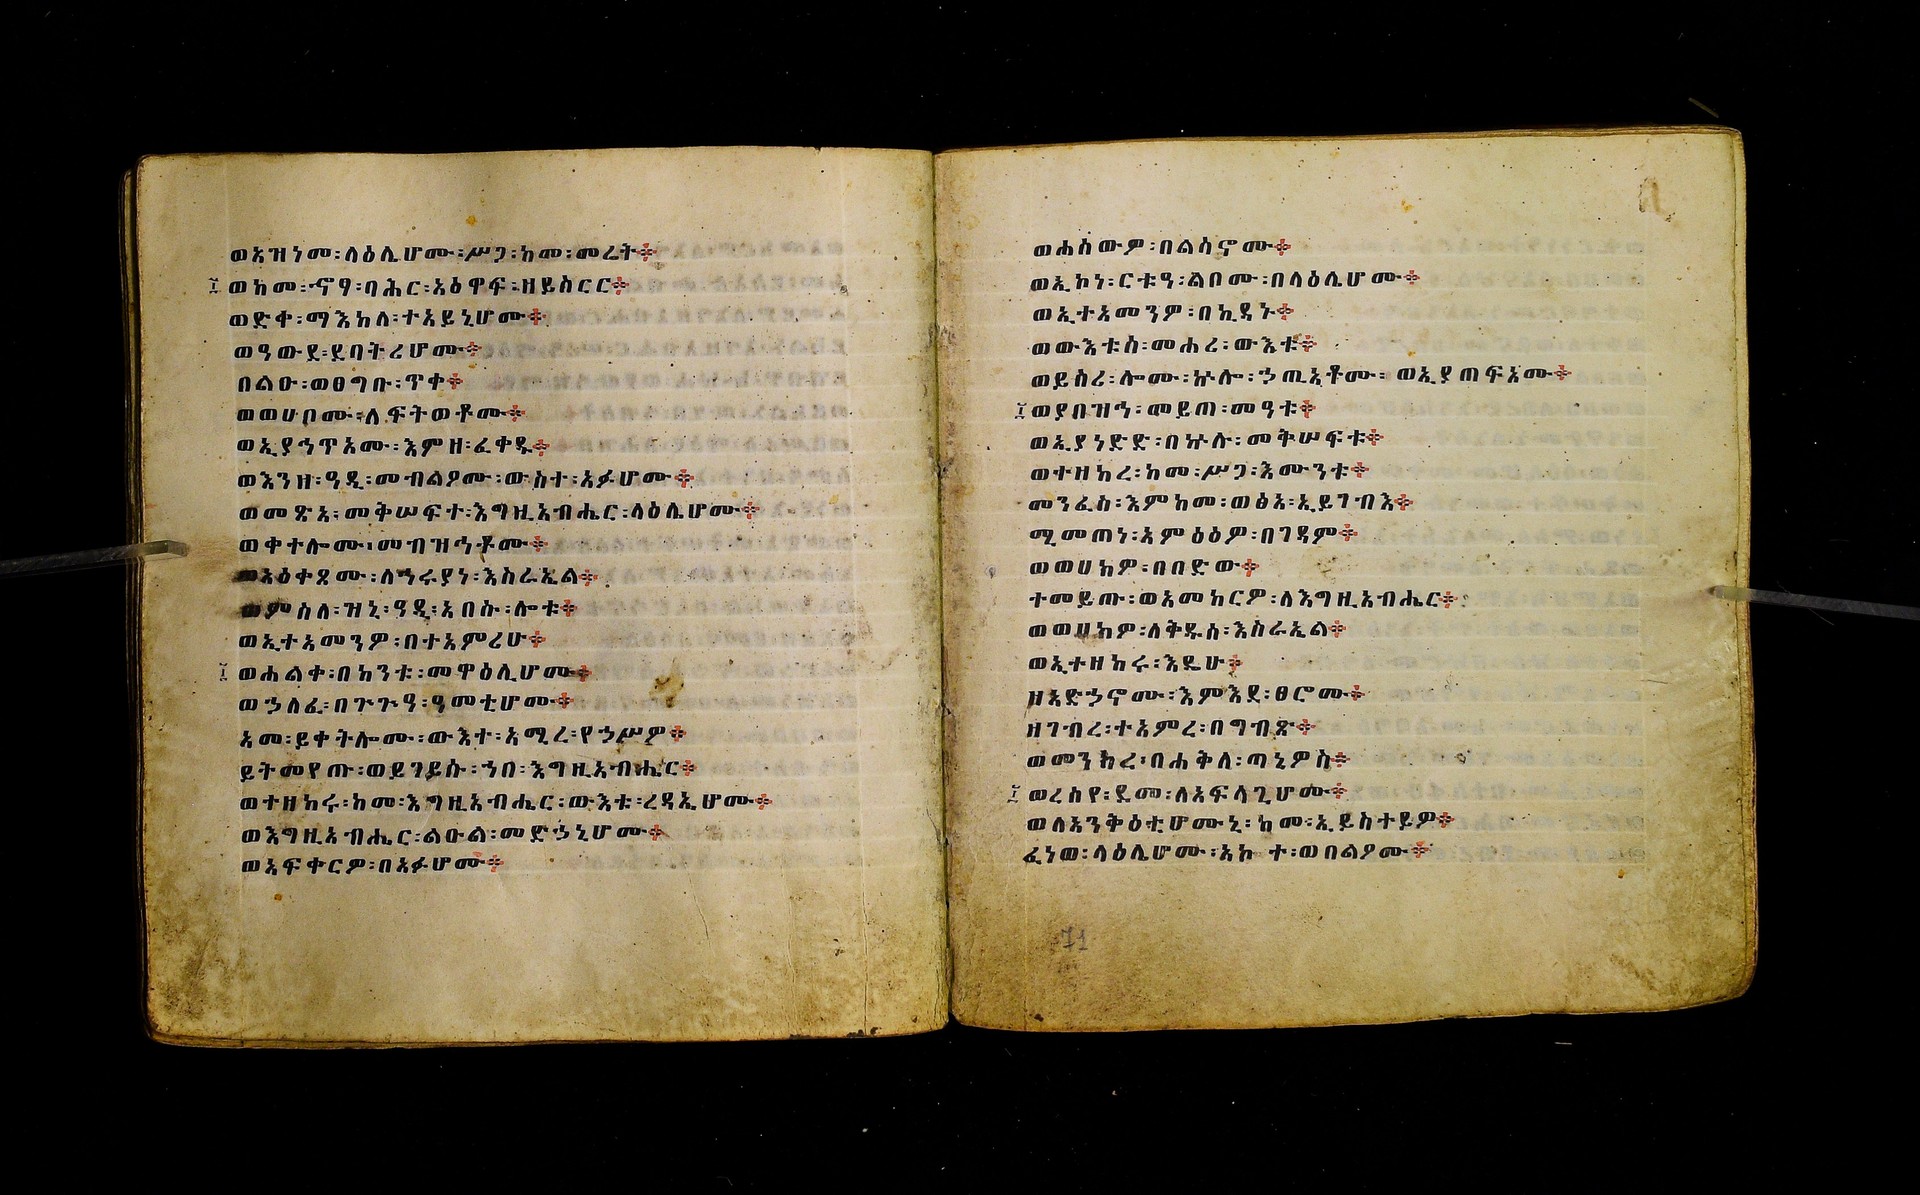 ወአዝነመ፡ላዕሌሆሙ፡ሥጋ፡ከመ፡መሬት፨
፲ ወከመ፡ኆፃ፡ባሕር፡አዕዋፍ፡ዘይሰርር፨
ወድቀ፡ማእከለ፡ተዓይኒሆሙ፨
ወዓውደ፡ደባትሪሆሙ፨
በልዑ፡ወፀግቡ፡ጥቀ፨
ወወሀቦሙ፡ለፍትወቶሙ፨
ወኢያኅጥአሙ፡እምዘ፡ፈቀዱ፨
ወእንዘ፡ዓዲ፡መብልዖሙ፡ውስተ፡አፉሆሙ፨
ወመጽአ፡መቅሠፍተ፡እግዚአብሔር፡ላዕሌሆሙ፨
ወቀተሎሙ፡መብዝኅቶሙ፨
ወአዕቀጾሙ፡ለኅሩያነ፡እስራኤል፨
ወምስለ፡ዝኒ፡ዓዲ፡አበሱ፡ሎቱ፨
ወኢተአመንዎ፡በተአምሪሁ፨
፲ ወሐልቀ፡በከንቱ፡መዋዕሊሆሙ፨
ወኃለፈ፡በጕጕዓ፡ዓመቲሆሙ፨
አመ፡ይቀትሎሙ፡ውእተ፡አሚረ፡የኃሥዎ፨
ይትመየጡ፡ወይገይሱ፡ኀበ፡እግዚአብሔር፨
ወተዘከሩ፡ከመ፡እግዚአብሔር፡ውእቱ፡ረዳኢሆሙ፨
ወእግዚአብሔር፡ልዑል፡መድኃኒሆሙ፨
ወአፍቀርዎ፡በአፉሆሙ፨
ወሐሰውዎ፡በልሳኖሙ፨
ወኢኮነ፡ርቱዓ፡ልቦሙ፡በላዕሌሆሙ፨
ወኢተአመንዎ፡በኪዳኑ፨
ወውእቱሰ፡መሐሪ፡ውእቱ፨
ወይሰሪ፡ሎሙ፡ኵሎ፡ኃጢአቶሙ፡ወኢያጠፍአሙ፨
፲ ወያበዝኅ፡መይጠ፡መዓቱ፨
ወኢያነድድ፡በኵሉ፡መቅሠፍቱ፨
ወተዘከረ፡ከመ፡ሥጋ፡እሙንቱ፨
መንፈስ፡እምከመ፡ወፅአ፡ኢይገብእ፨
ሚመጠነ፡አምዕዕዎ፡በገዳም፨
ወወሀክዎ፡በበድው፨
ተመይጡ፡ወአመከርዎ፡ለእግዚአብሔር፨
ወወሀክዎ፡ለቅዱሰ፡እስራኤል፨
ወኢተዘከሩ፡እዴሁ፨
ዘአድኃኖሙ፡እምእደ፡ፀሮሙ፨
ዘገብረ፡ተአምረ፡በግብጽ፨
ወመንክረ፡በሐቅለ፡ጣኔዎስ፨
፲ ወረሰየ፡ደመ፡ለአፍላጊሆሙ፨
ወለአንቅዕቲሆሙኒ፡ከመ፡ኢይስተይዎ፨
ፈነወ፡ላዕሌሆሙ፡አኮ ተ፡ወበልዖሙ፨
71